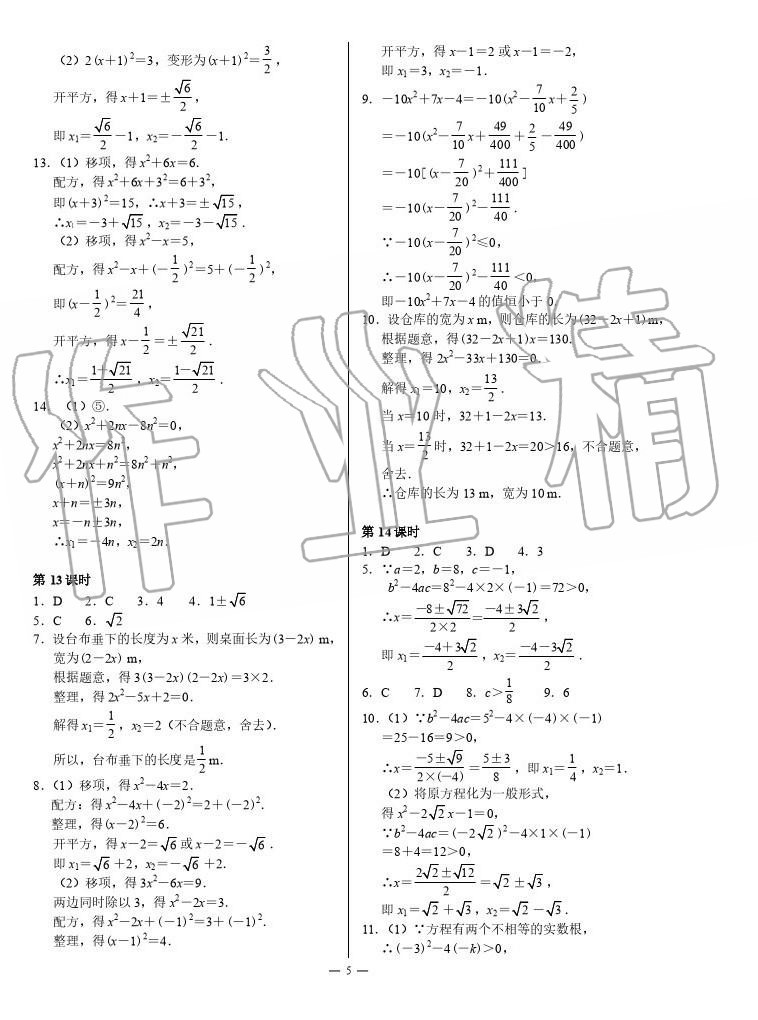 (2) 2(x+1)²=3,变形为(x+1)²=3/2,
开平方,得x+1=±√6/2,
即x₁=√6/2-1,x₂=-√6/2-1.
13.(1)移项,得x²+6x=6.
配方,得x²+6x+3²=6+3²,
即(x+3)²=15,∴x+3=±√15,
∴x₁=-3+√15,x₂=-3-√15.
(2)移项,得x²-x=5,
配方,得x²-x+(-1/2)²=5+(-1/2)²,
即(x-1/2)²=21/4,
开平方,得x-1/2=±√21/2.
∴x₁=1+√21/2,x₂=1-√21/2.
14.(1)⑤.
(2)x²+2nx-8n²=0,
x²+2nx=8n²,
x²+2nx+n²=8n²+n²,
(x+n)²=9n²,
x+n=±3n,
x=-n±3n,
∴x₁=-4n,x₂=2n.
第13课时
1.D 2.C 3.4 4.1±√6
5.C 6.√2
7.设台布垂下的长度为x米,则桌面长为(3-2x) m,
宽为(2-2x) m,
根据题意,得3(3-2x)(2-2x)=3×2.
整理,得2x²-5x+2=0.
解得x₁=1/2,x₂=2(不合题意,舍去).
所以,台布垂下的长度是1/2 m.
8.(1)移项,得x²-4x=2.
配方:得x²-4x+(-2)²=2+(-2)².
整理,得(x-2)²=6.
开平方,得x-2=√6或x-2=-√6.
即x₁=√6+2,x₂=-√6+2.
(2)移项,得3x²-6x=9.
两边同时除以3,得x²-2x=3.
配方,得x²-2x+(-1)²=3+(-1)².
整理,得(x-1)²=4.
开平方,得x-1=2或x-1=-2,
即x₁=3,x₂=-1.
9.-10x²+7x-4=-10(x²-7/10x+2/5)
=-10(x²-7/10x+49/400+2/5-49/400)
=-10[(x-7/20)²+111/400]
=-10(x-7/20)²-111/40.
∵-10(x-7/20)²≤0,
∴-10(x-7/20)²-111/40<0,
即-10x²+7x-4的值恒小于0.
10.设仓库的宽为x m,则仓库的长为(32-2x+1)m,
根据题意,得(32-2x+1)x=130.
整理,得2x²-33x+130=0.
解得x₁=10,x₂=13/2.
当x=10时,32+1-2x=13.
当x=13/2时,32+1-2x=20>16,不合题意,
舍去.
∴仓库的长为13 m,宽为10 m.
第14课时
1.D 2.C 3.D 4.3
5.∵a=2,b=8,c=-1,
b²-4ac=8²-4×2×(-1)=72>0,
∴x=-8±√72/2×2=-4±3√2/2,
即x₁=-4+3√2/2,x₂=-4-3√2/2.
6.C 7.D 8.c>1/8 9.6
10.(1)∵b²-4ac=5²-4×(-4)×(-1)
=25-16=9>0,
∴x=-5±√9/2×(-4)=5±3/8,即x₁=1/4,x₂=1.
(2)将原方程化为一般形式,
得x²-2√2x-1=0,
∵b²-4ac=(-2√2)²-4×1×(-1)
=8+4=12>0,
∴x=2√2±√12/2=√2±√3,
即x₁=√2+√3,x₂=√2-√3.
11.(1)∵方程有两个不相等的实数根,
∴(-3)²-4(-k)>0,
— 5 —
作业精